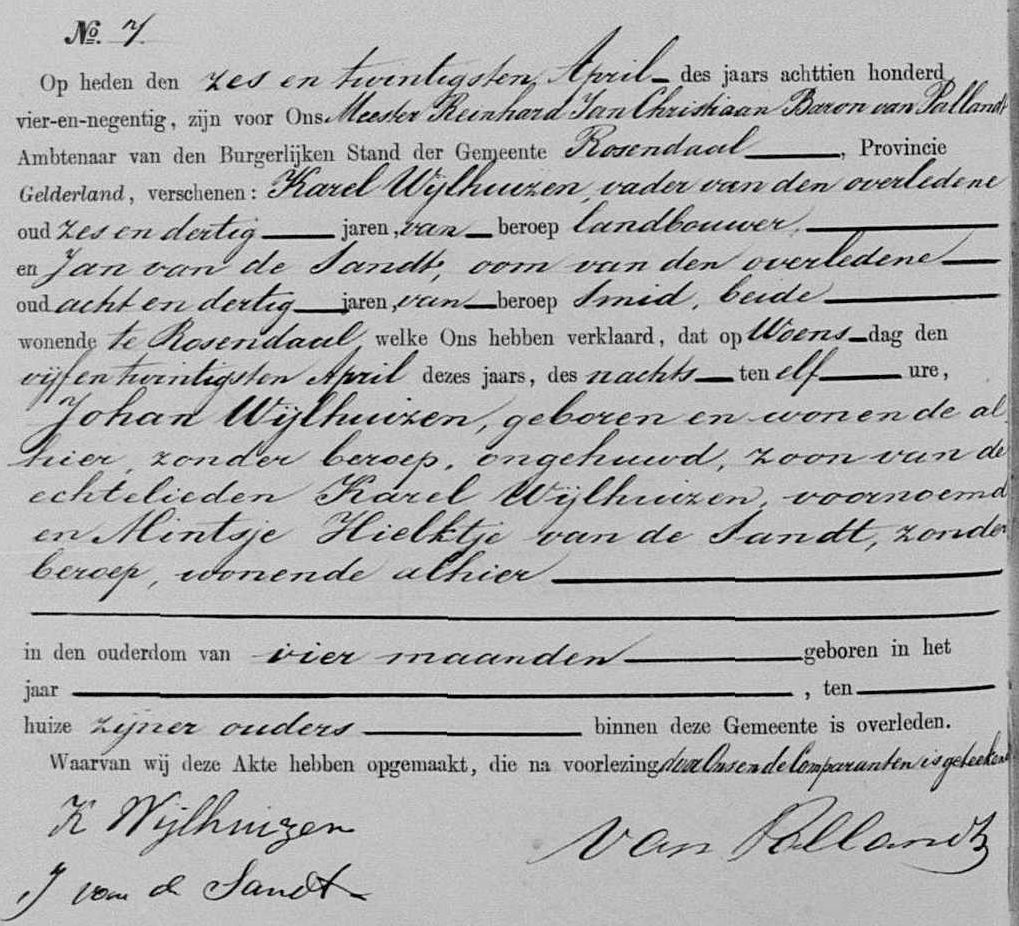 No. 7
Op heden den zes en twintigsten April des jaars achttien honderd
vier-en-negentig, zijn voor Ons Meester Reinhard Jan Christiaan Baron van Pallandt
Ambtenaar van den Burgerlijken Stand der Gemeente Rosendaal, Provincie
Gelderland, verschenen: Karel Wijlhuizen, vader van den overledene
oud zes en dertig jaren, van beroep landbouwer,
en Jan van de Sandt, oom van den overledene
oud acht en dertig jaren, van beroep Smid, beide
wonende te Rosendaal, welke Ons hebben verklaard, dat op Woensdag den
vijf en twintigsten April dezes jaars, des nachts ten elf ure,
Johan Wijlhuizen, geboren en wonende al
hier, zonder beroep, ongehuwd, zoon van de
echtelieden Karel Wijlhuizen, voornoemd
en Mintsje Hielktje van de Sandt, zonder
beroep, wonende alhier
in den ouderdom van vier maanden geboren in het
jaar , ten
huize zijner ouders binnen deze Gemeente is overleden.
Waarvan wij deze Akte hebben opgemaakt, die na voorlezing door Ons en de Comparanten is geteekend
K Wijlhuizen
van Pallandt
J van de Sandt